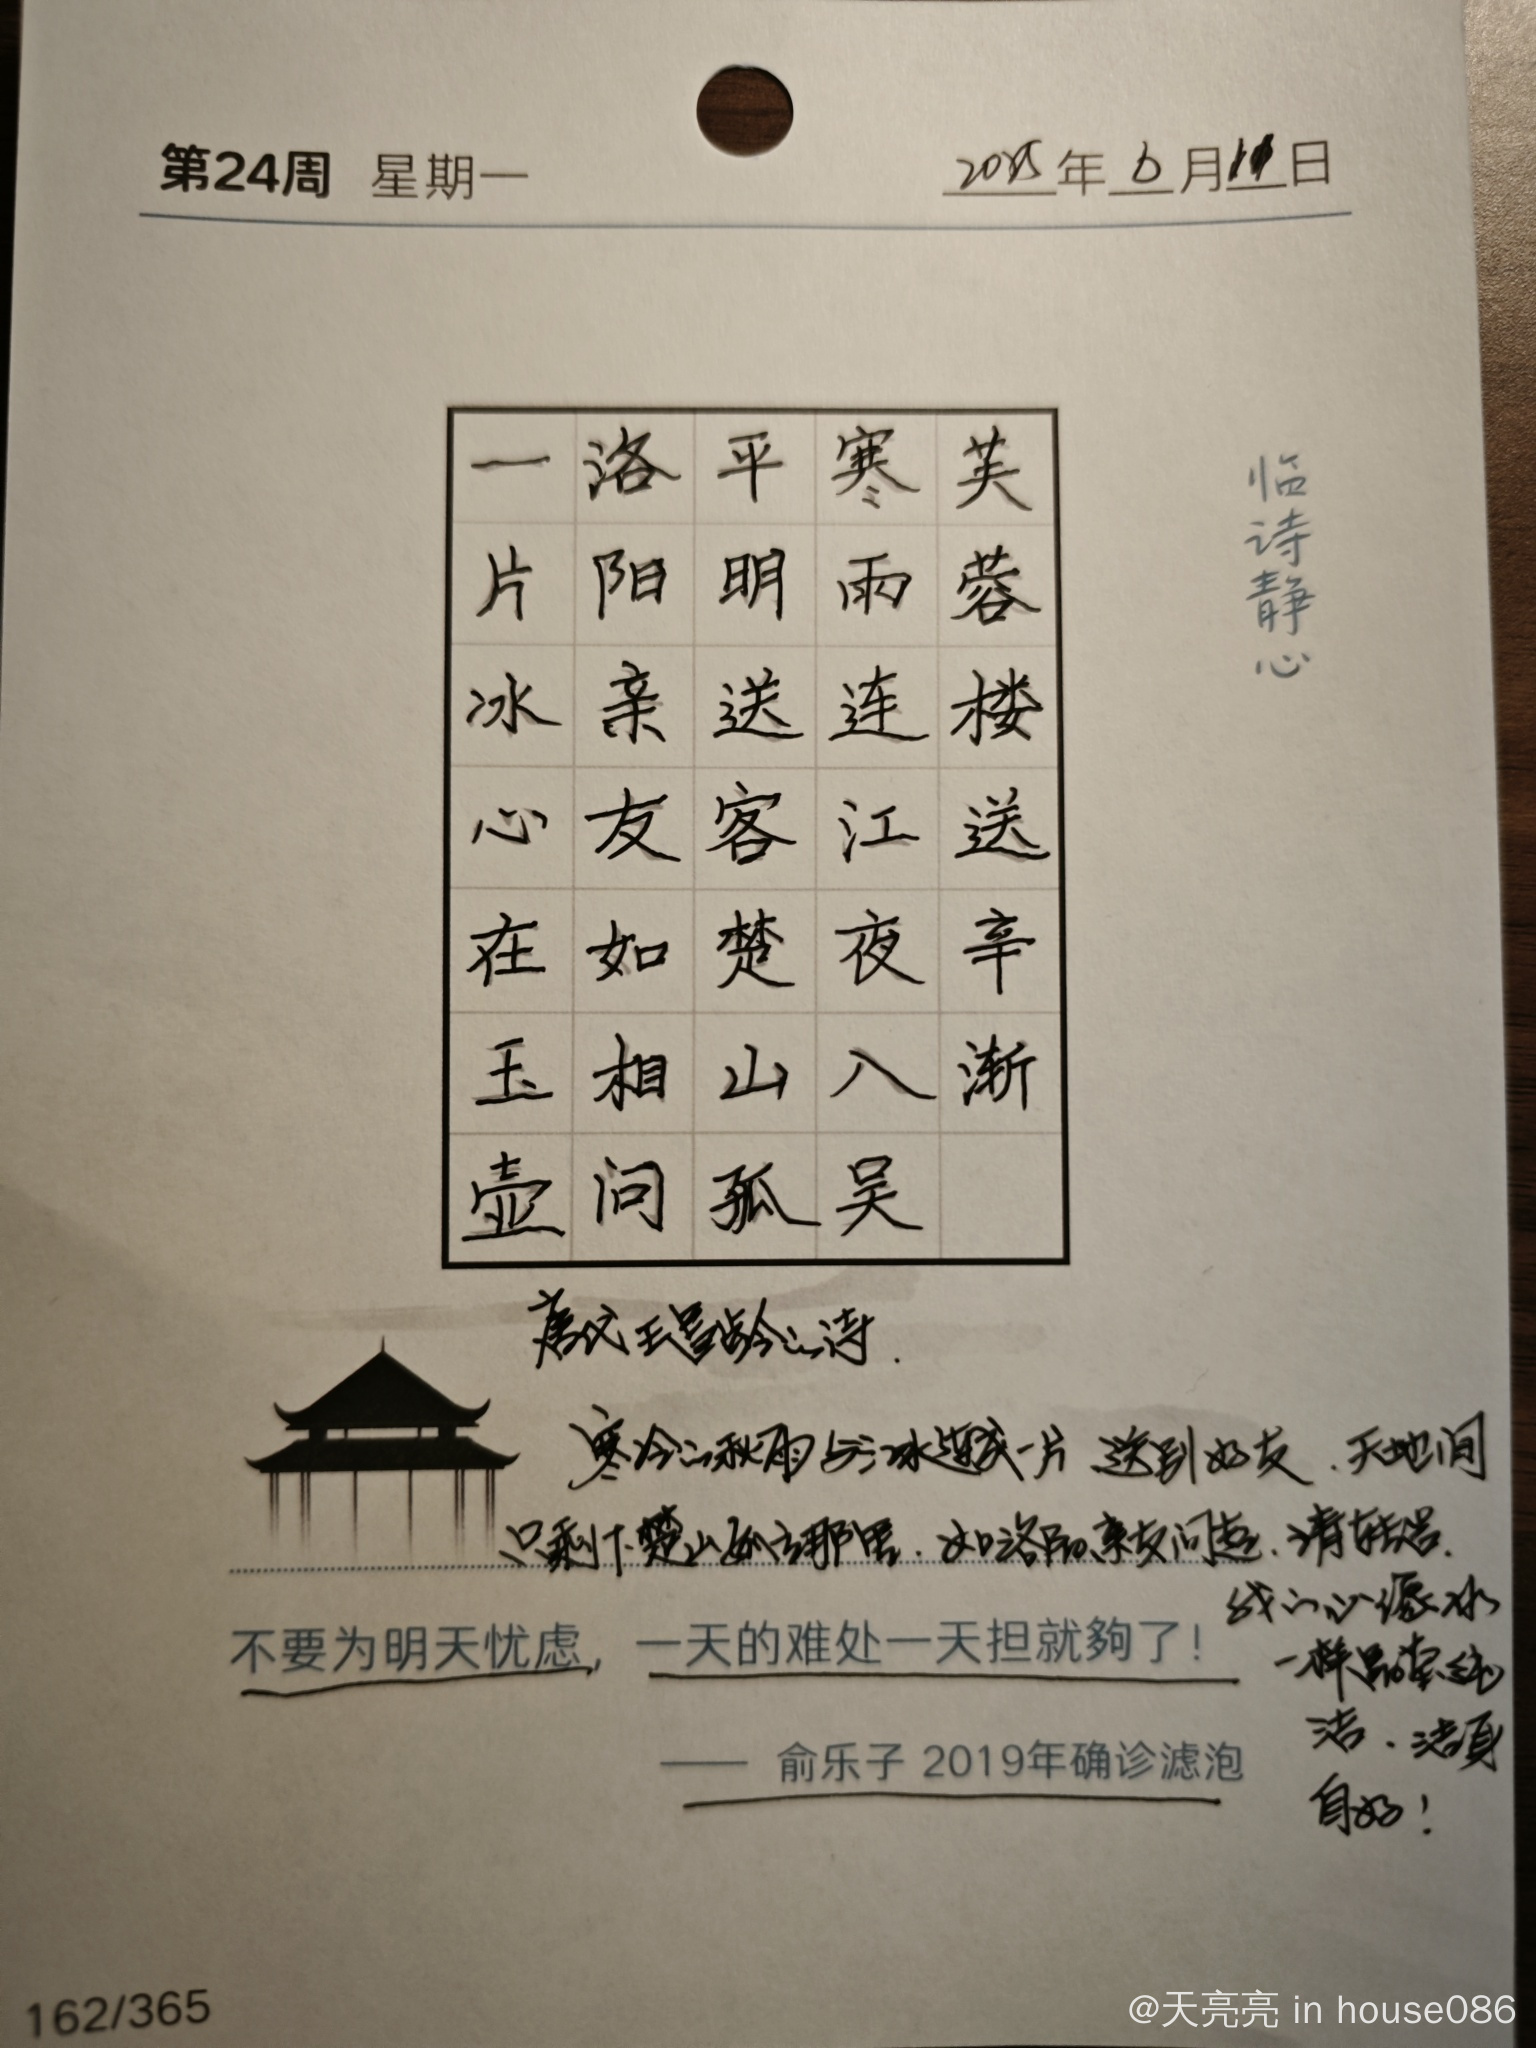 第24周 星期一
2025年6月11日
临诗静心
芙蓉楼送辛渐
寒雨连江夜入吴
平明送客楚山孤
洛阳亲友如相问
一片冰心在玉壶
唐代王昌龄的诗.
寒冷的秋雨与江水连成一片 送到好友.天地间
只剩下楚山孤立那里.如洛阳亲友问起.请转告.
我的心像冰
一样晶莹纯
洁.洁身
自好!
不要为明天忧虑，一天的难处一天担就夠了!
—— 俞乐子 2019年确诊滤泡
162/365
@天亮亮 in house086